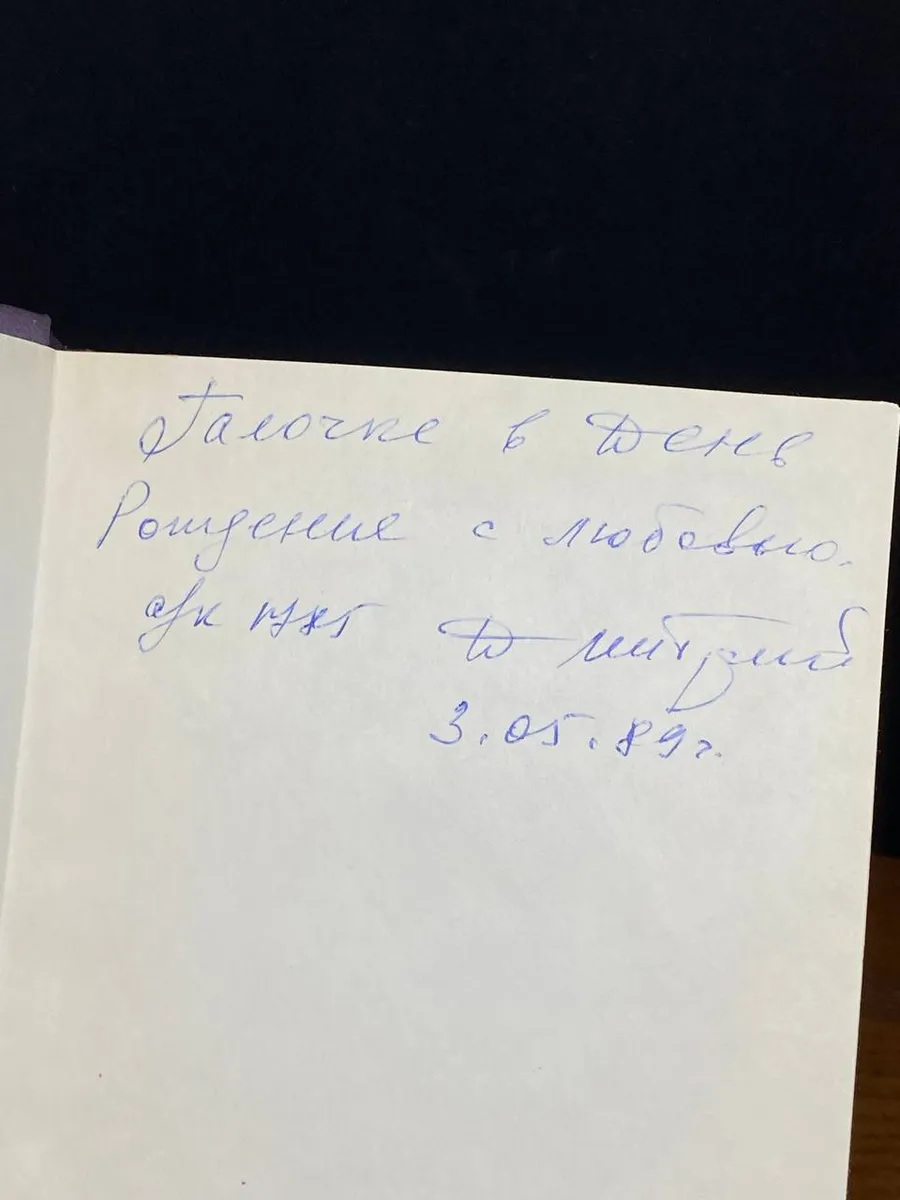 Галочке в День
Рождение с любовью.
Дмитрий
3.05.89г.